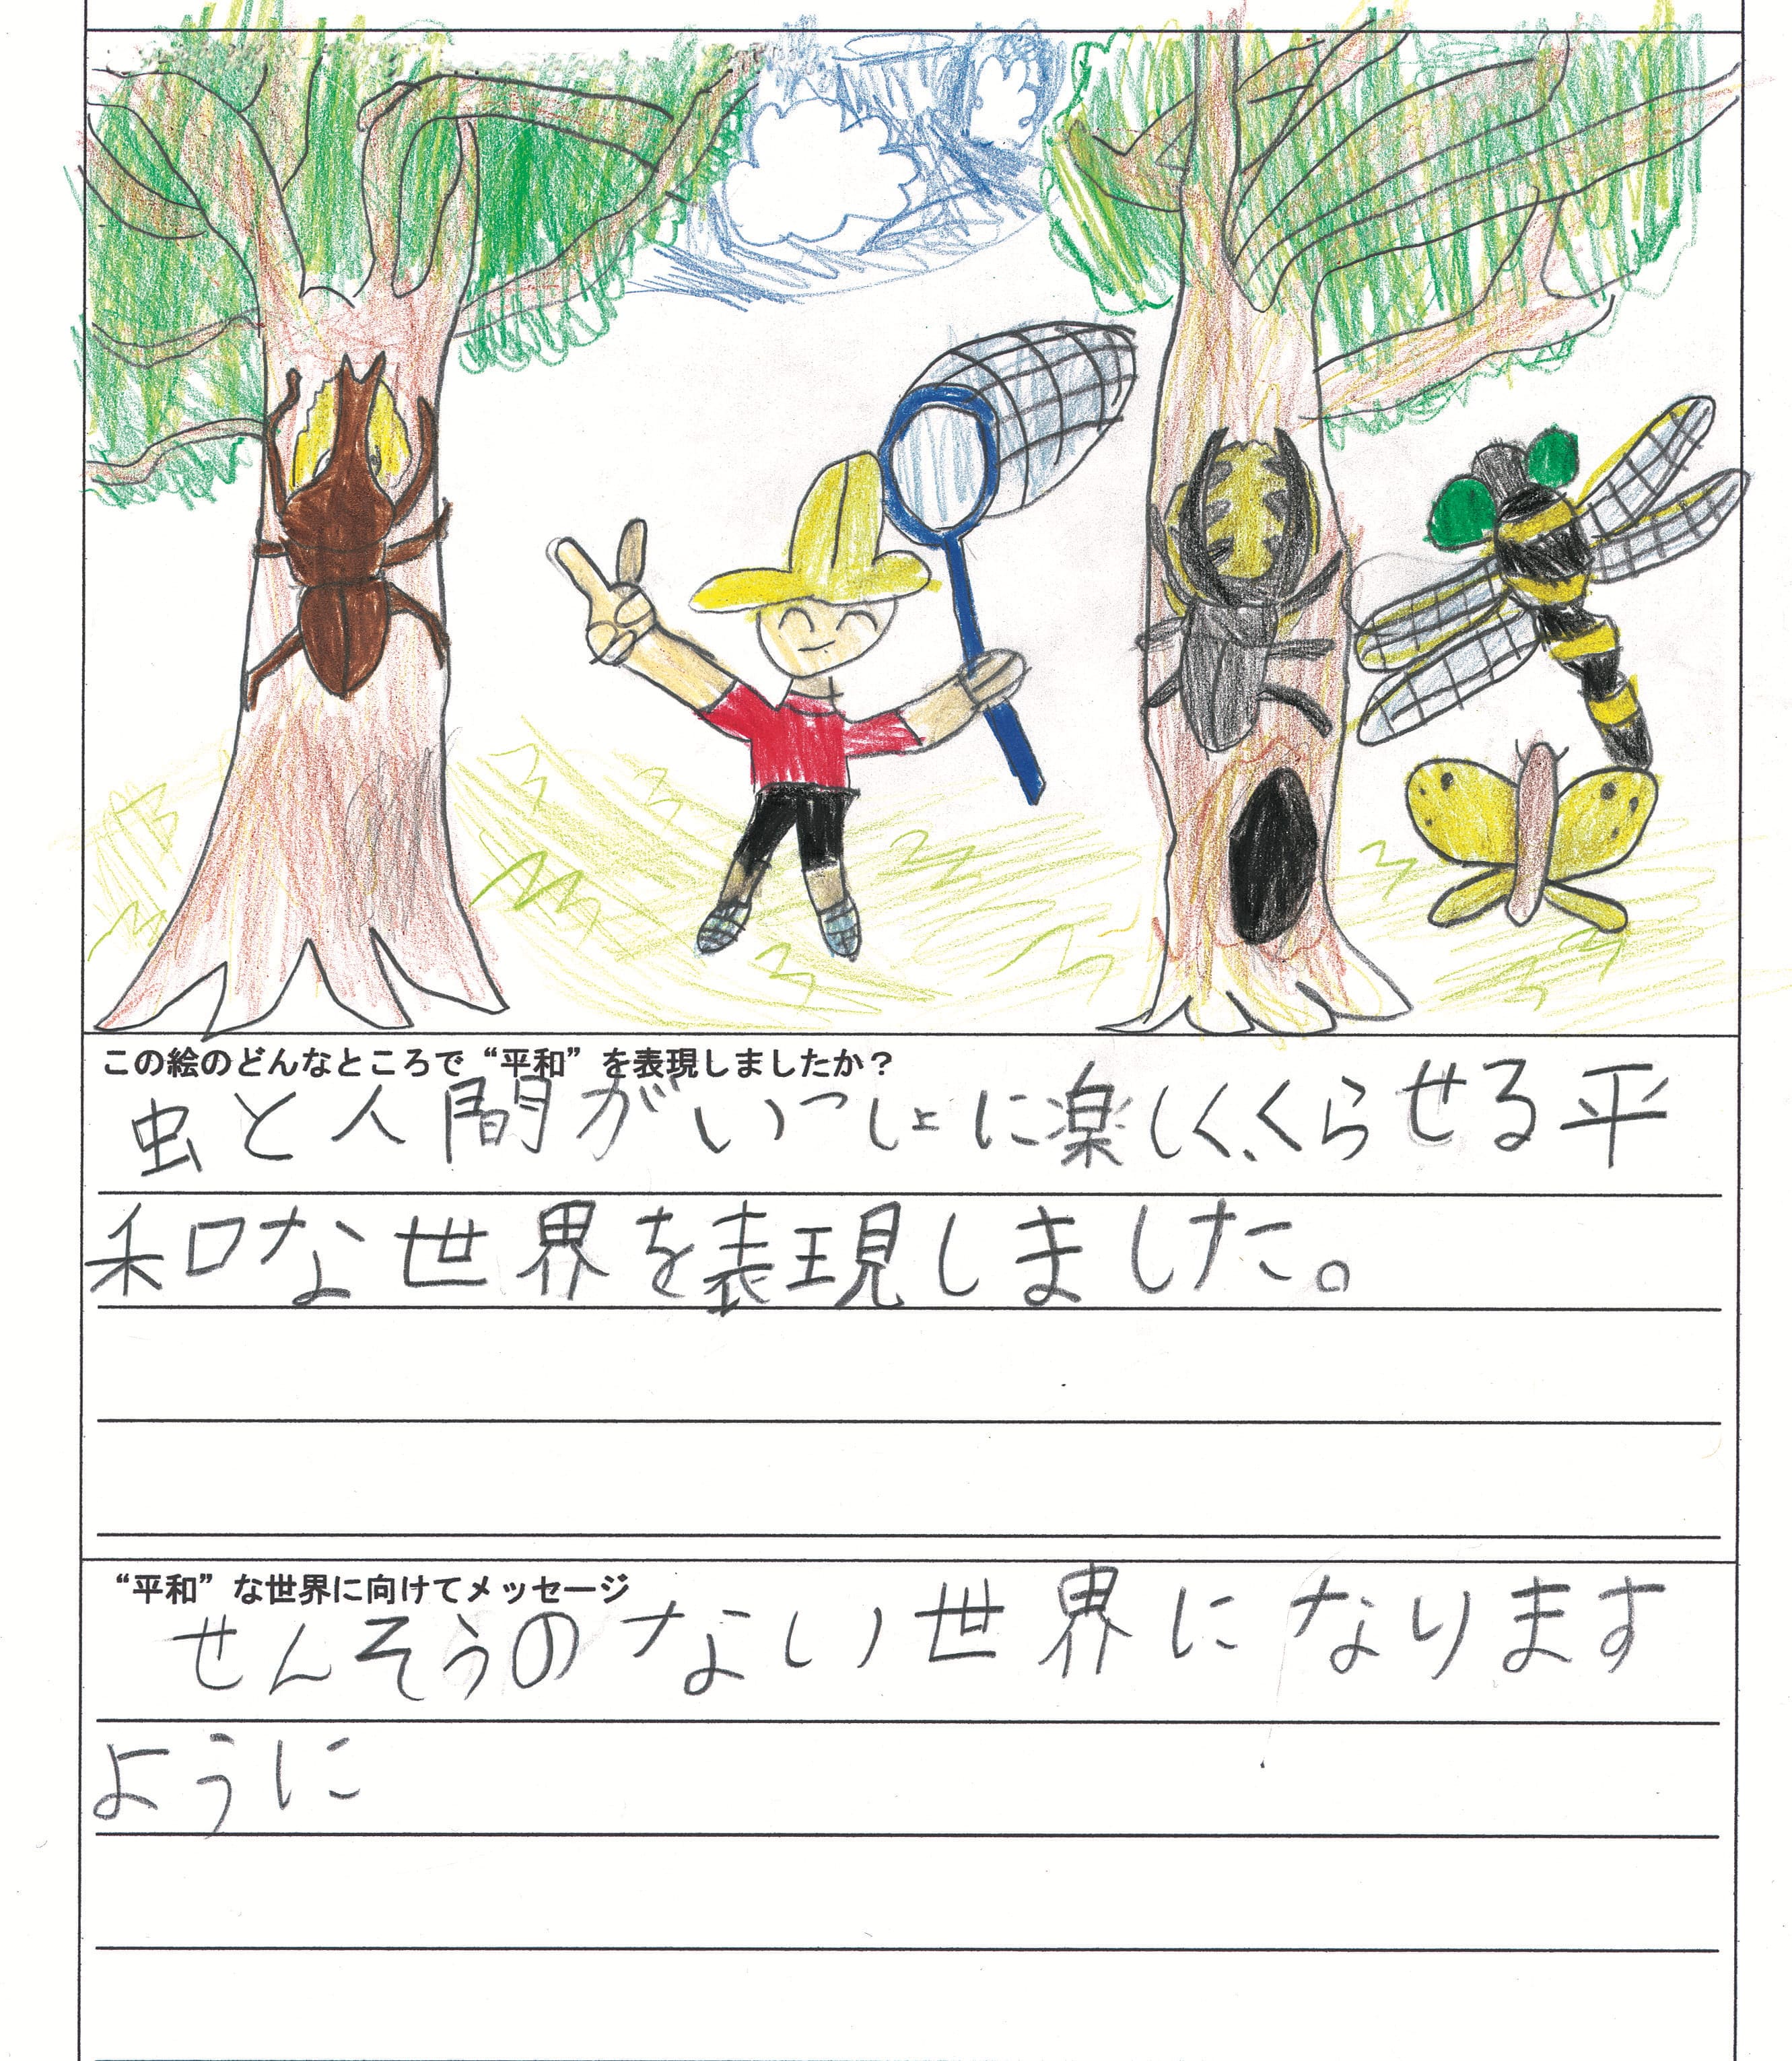 この絵のどんなところで“平和”を表現しましたか？
虫と人間がいっしょに楽しく、くらせる平
和な世界を表現しました。
“平和”な世界に向けてメッセージ
せんそうのない世界になります
ように